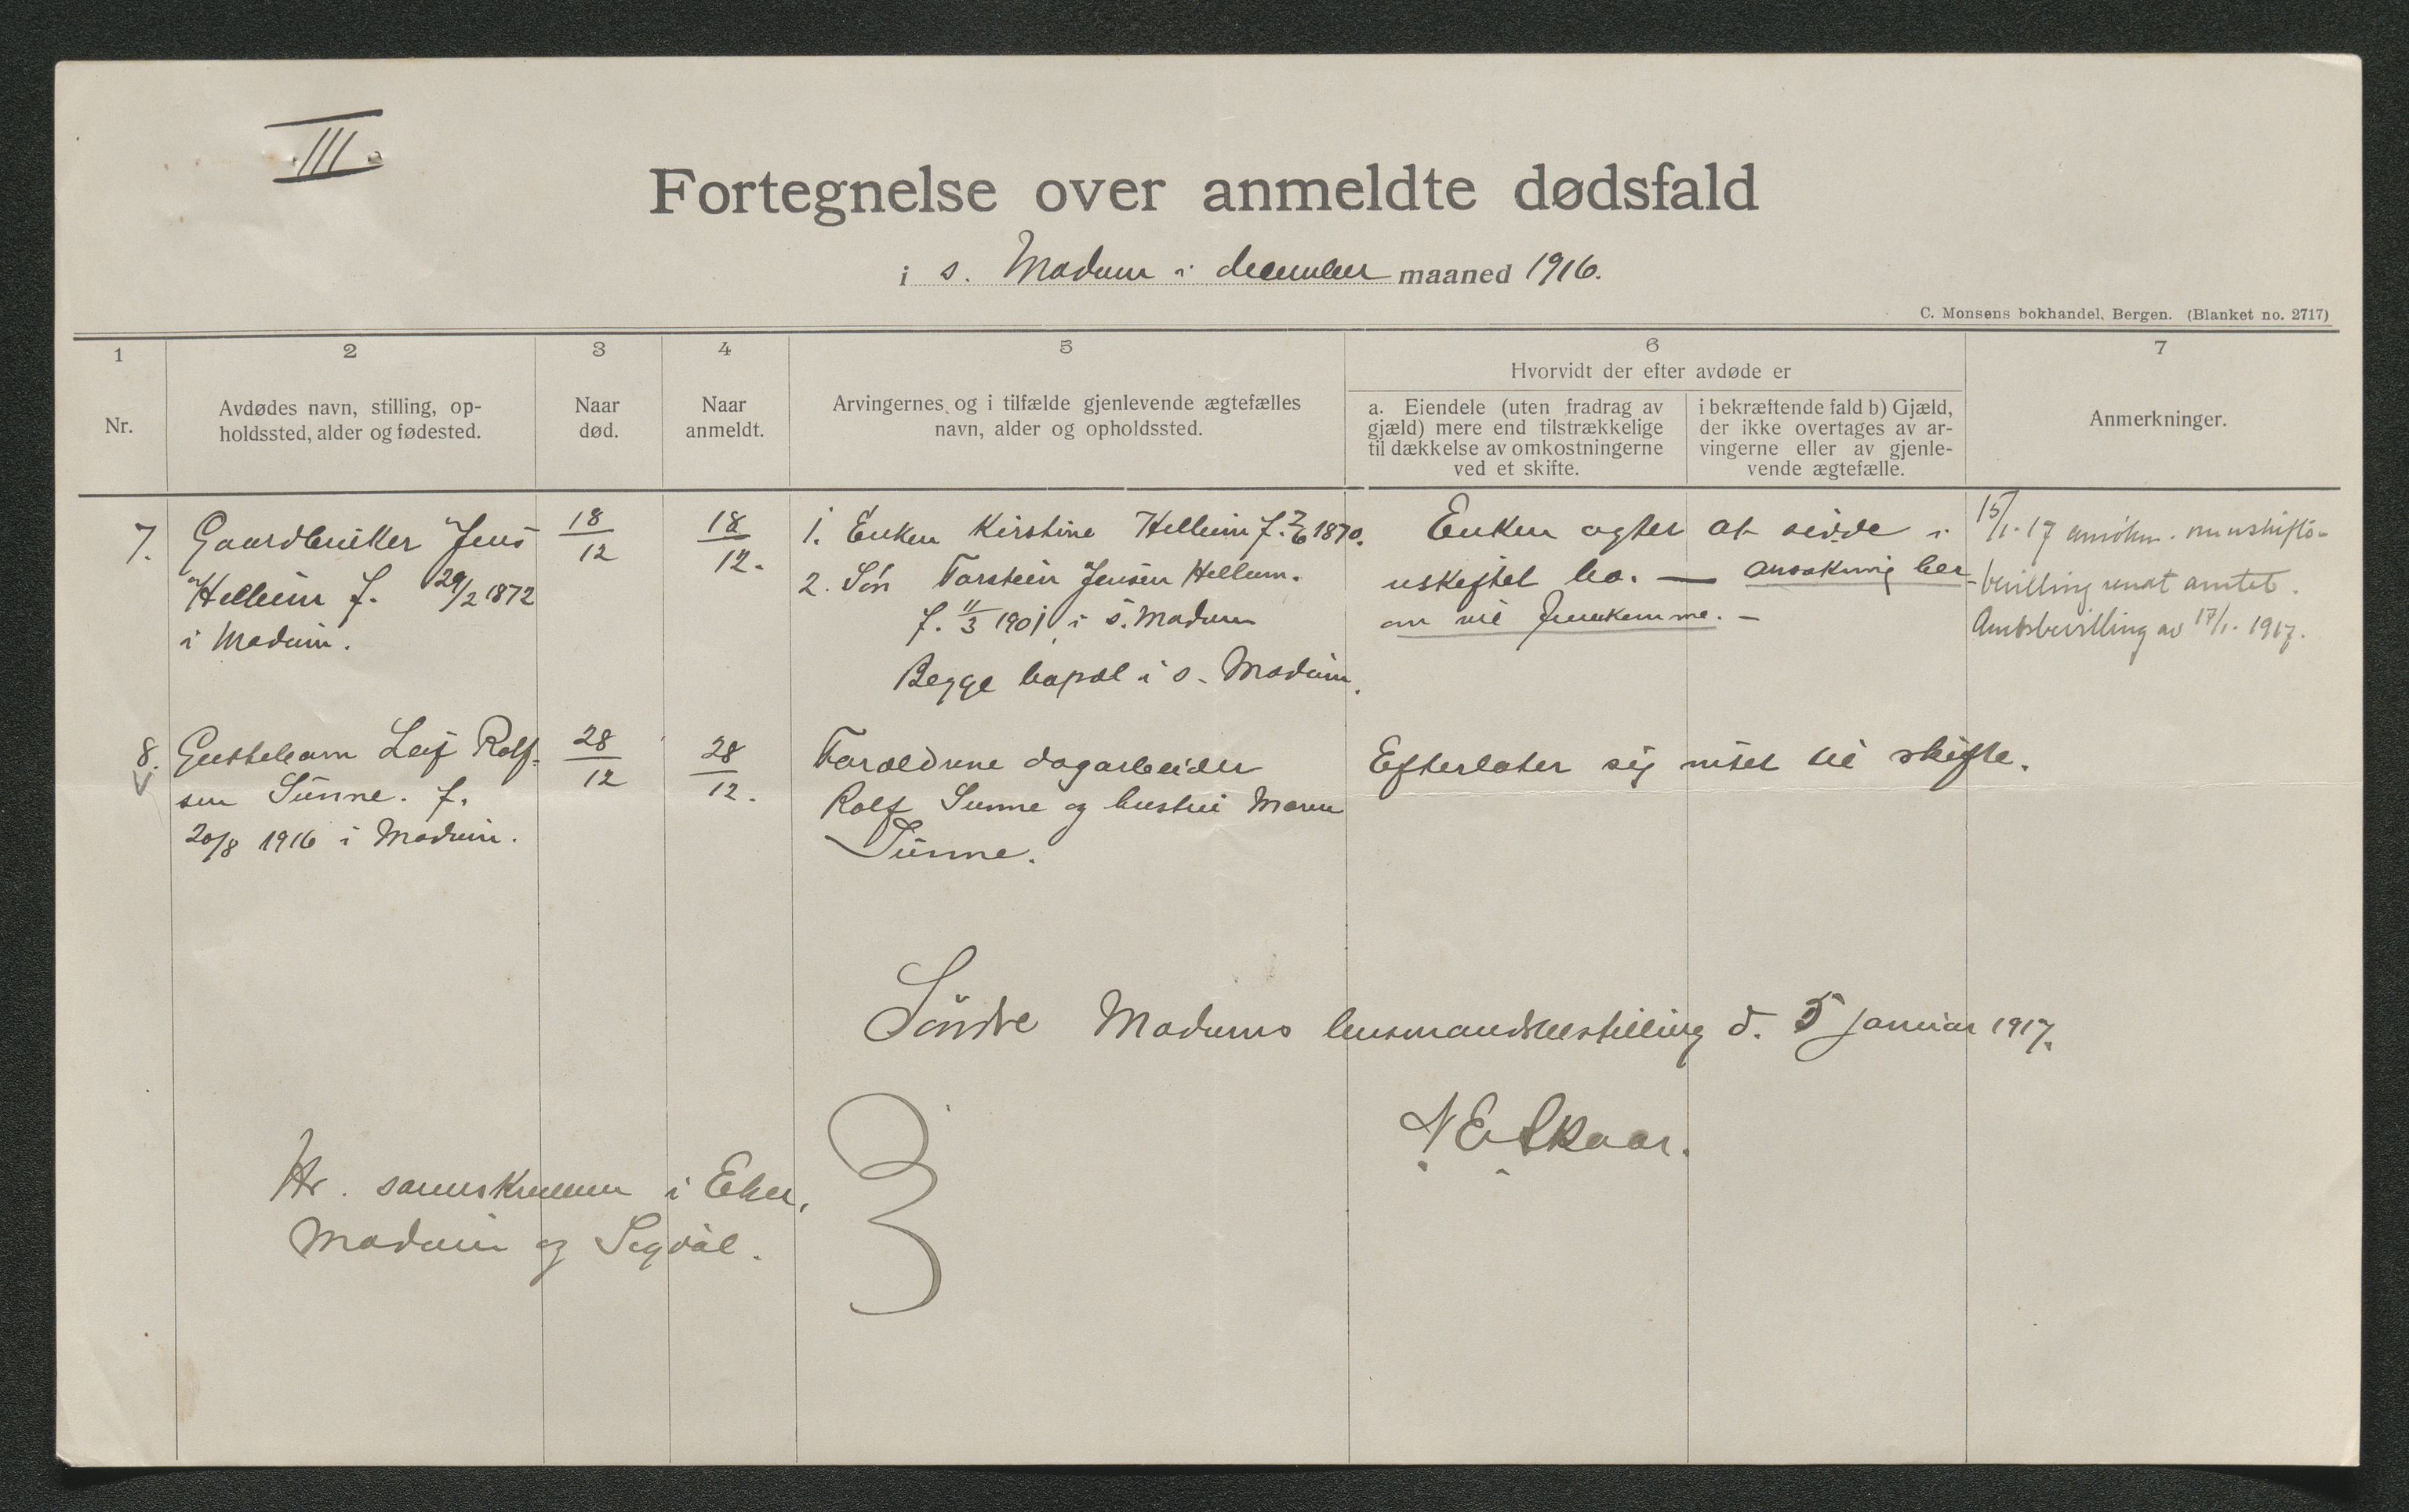 III.
Fortegnelse over anmeldte dødsfald
i s. Modum i december maaned 1916.
C. Monsens bokhandel, Bergen. (Blanket no. 2717)
1
2
3
4
5
6
7
Nr.
Avdødes navn, stilling, op-
holdssted, alder og fødested.
Naar
død.
Naar
anmeldt.
Arvingernes og i tilfælde gjenlevende ægtefælles
navn, alder og opholdssted.
Hvorvidt der efter avdøde er
a. Eiendele (uten fradrag av
gjæld) mere end tilstrækkelige
til dækkelse av omkostningerne
ved et skifte.
i bekræftende fald b) Gjæld,
der ikke overtages av ar-
vingerne eller av gjenle-
vende ægtefælle.
Anmerkninger.
7.
Gaardbruker Jens
Hellum f. 29/2 1872
i Modum.
18/12
18/12.
1. Enken Kirstine Hellum f. 7/6 1870.
2. Søn Torstein Jensen Hellum.
f. 11/3 1901 i s. Modum
Begge bopæl i s. Modum.
Enken agter at sidde i
uskiftet bo. — Ansøkning her-
om vil fremkomme. —
15/1. 17 ansøkn. om uskifte-
bevilling sendt amtet.
Amtsbevilling av 17/1. 1917.
8.
Guttebarn Leif Rolf-
sen Sunne. f.
20/8 1916 i Modum.
28/12
28/12.
Forældrene dagarbeider
Rolf Sunne og hustru Maren
Sunne.
Efterlater sig intet til skifte.
Søndre Modums lensmandsbestilling d. 5 januar 1917.
N E Skaar.
Hr. sorenskriveren i Eker,
Modum og Sigdal.
3